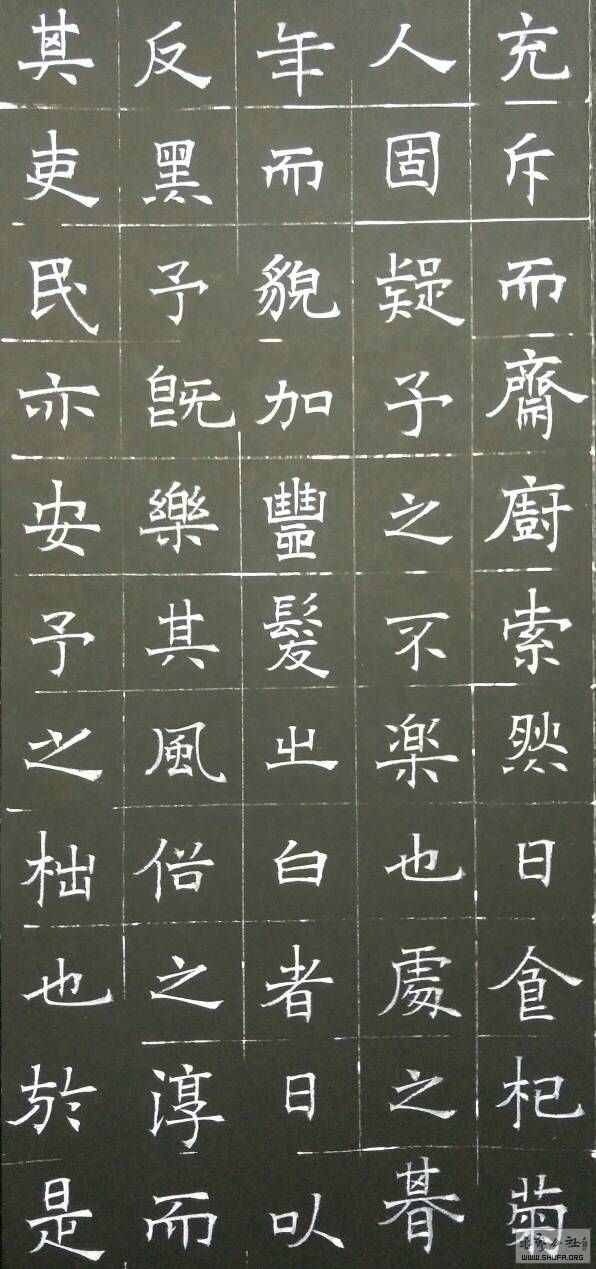 充斥而齋廚索然日食杞菊
人固疑予之不楽也處之朞
年而貌加豐髮之白者日以
反黑予既樂其風俗之淳而
其吏民亦安予之拙也於是
WWW.SHUFA.ORG